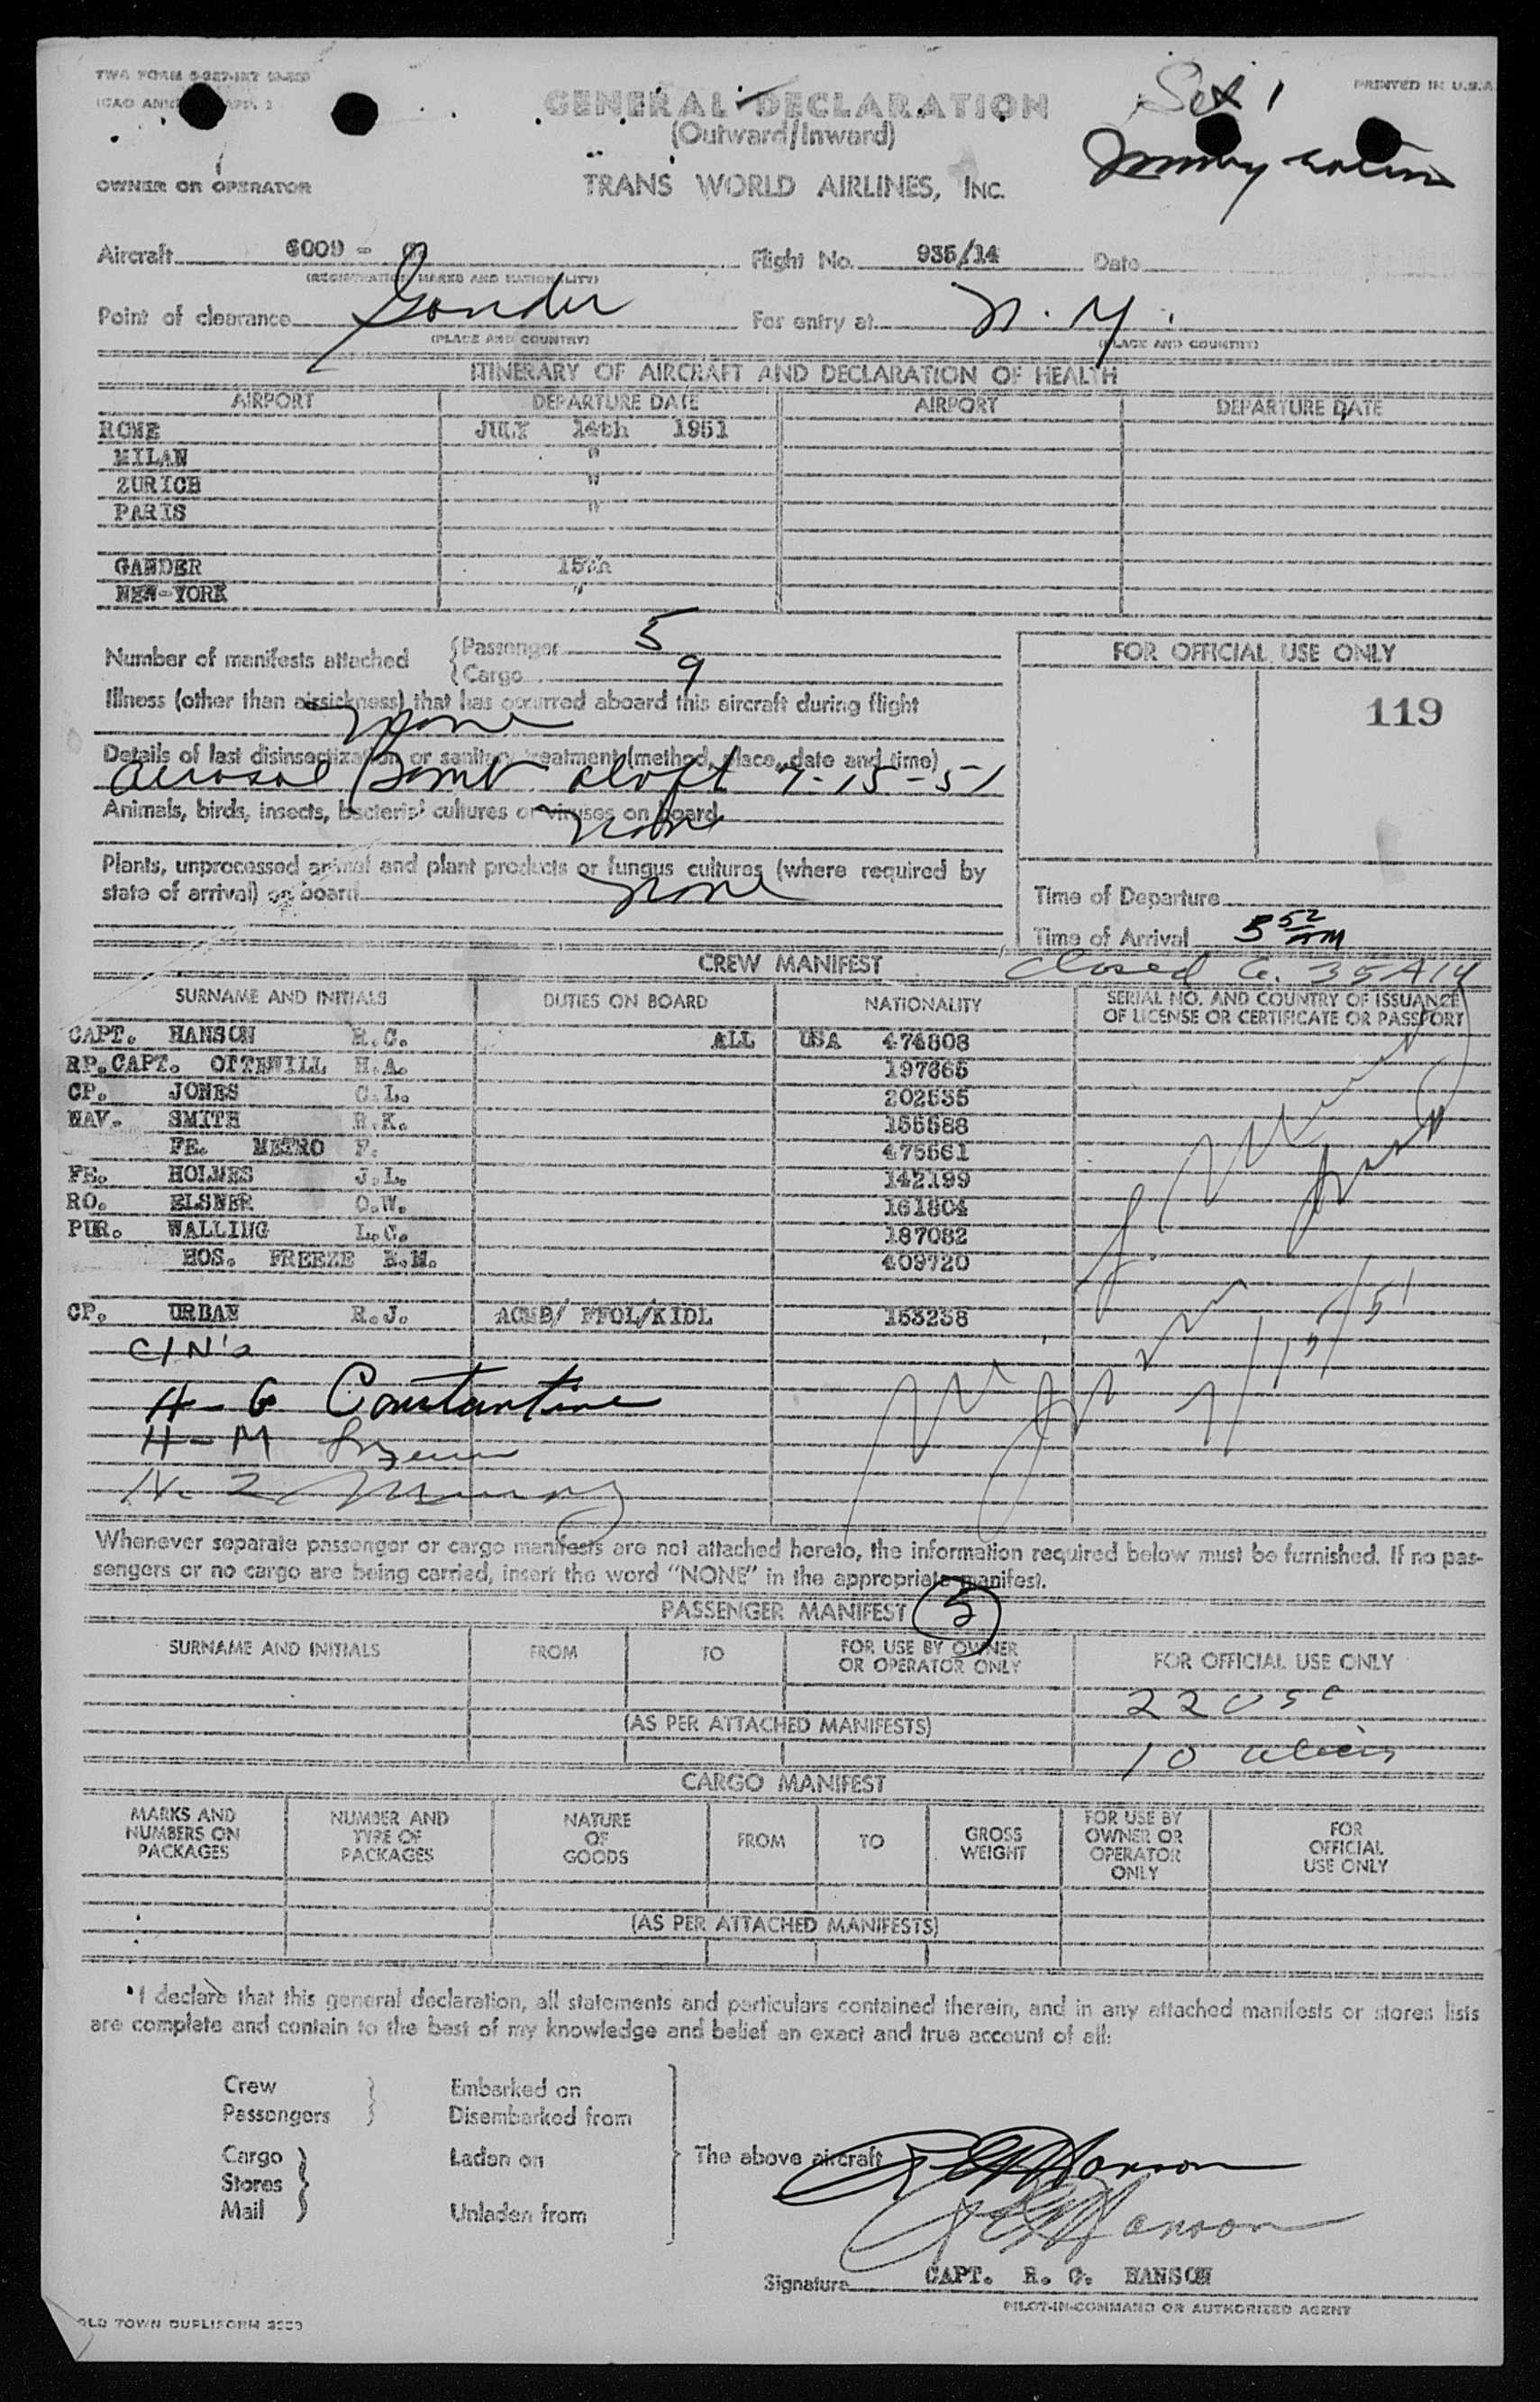 TWA FORM
PRINTED IN U.S.A.
Set 1
GENERAL DECLARATION
(Outward/Inward)
OWNER OR OPERATOR
TRANS WORLD AIRLINES, INC.
Aircraft 6009 - Flight No. 935/14 Date
(REGISTRATION MARKS AND NATIONALITY)
Point of clearance Gander For entry at N.Y.
(PLACE AND COUNTRY) (PLACE AND COUNTRY)
ITINERARY OF AIRCRAFT AND DECLARATION OF HEALTH
AIRPORT DEPARTURE DATE AIRPORT DEPARTURE DATE
ROME JULY 14th 1951
MILAN "
ZURICH "
PARIS "
GANDER 15th
NEW-YORK "
Number of manifests attached { Passenger 5
{ Cargo 9
FOR OFFICIAL USE ONLY
119
Illness (other than airsickness) that has occurred aboard this aircraft during flight
none
Details of last disinsectization or sanitary treatment (method, place, date and time)
Aerosol Bomb aloft 7-15-51
Animals, birds, insects, bacterial cultures or viruses on board none
Plants, unprocessed animal and plant products or fungus cultures (where required by
state of arrival) on board none
Time of Departure
Time of Arrival 5 52 AM
CREW MANIFEST
Closed 6.35 AM
SURNAME AND INITIALS DUTIES ON BOARD NATIONALITY SERIAL NO. AND COUNTRY OF ISSUANCE
OF LICENSE OR CERTIFICATE OR PASSPORT
CAPT. HANSON R.G. ALL USA 474808
RP.CAPT. OTTEWILL H.A. 197665
CP. JONES C.L. 202535
NAV. SMITH 155588
FE. METRO F. 475561
FE. HOLMES J.L. 142199
RO. ELSNER O.W. 161804
PUR. WALLING L.G. 187082
HOS. FREEZE 409720
CP. URBAN R.J. ACMB/ FFOL/KIDL 153238
C/N's
H-G Constantine
H-M
7/15/51
Whenever separate passenger or cargo manifests are not attached hereto, the information required below must be furnished. If no pas-
sengers or no cargo are being carried, insert the word "NONE" in the appropriate manifest.
PASSENGER MANIFEST 5
SURNAME AND INITIALS FROM TO FOR USE BY OWNER
OR OPERATOR ONLY FOR OFFICIAL USE ONLY
22 USC
(AS PER ATTACHED MANIFESTS)
10 aliens
CARGO MANIFEST
MARKS AND
NUMBERS ON
PACKAGES NUMBER AND
TYPE OF
PACKAGES NATURE
OF
GOODS FROM TO GROSS
WEIGHT FOR USE BY
OWNER OR
OPERATOR
ONLY FOR
OFFICIAL
USE ONLY
(AS PER ATTACHED MANIFESTS)
"I declare that this general declaration, all statements and particulars contained therein, and in any attached manifests or stores lists
are complete and contain to the best of my knowledge and belief an exact and true account of all:
Crew Embarked on
Passengers Disembarked from
Cargo Laden on The above aircraft
Stores
Mail Unladen from
R G Hanson
R G Hanson
Signature CAPT. R. G. HANSON
PILOT-IN-COMMAND OR AUTHORIZED AGENT
OLD TOWN DUPLIFORM